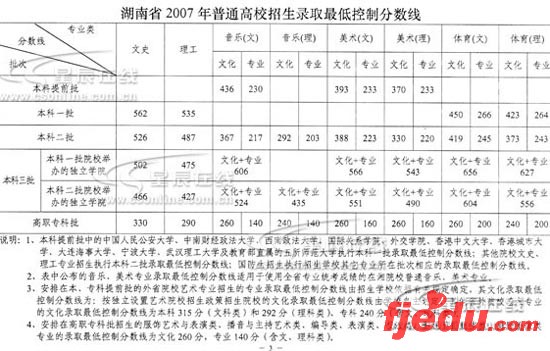 湖南省2007年普通高校招生录取最低控制分数线
专业类 分数线 批次 文史 理工 音乐(文) 音乐(理) 美术(文) 美术(理) 体育(文) 体育(理)
文化 专业 文化 专业 文化 专业 文化 专业 文化 专业 文化 专业
本科提前批 436 230 393 233 370 233
本科一批 562 535 450 266 423 264
本科二批 526 487 367 217 292 203 388 223 330 220 419 245 373 243
本科三批 本科一批院校举办的独立学院 502 475 文化+专业 606 文化+专业 566 文化+专业 543 文化+专业 656 文化+专业 627
本科二批院校举办的独立学院 466 427 文化+专业 524 文化+专业 435 文化+专业 551 文化+专业 490 文化+专业 604 文化+专业 556
高职专科批 330 290 260 140 240 140 260 160 260 160 260 200 240 200
说明:1、本科提前批中的中国人民公安大学、中南财经政法大学、西南政法大学、国际关系学院、外交学院、香港中文大学、香港城市大
学、大连海事大学、宁波大学、武汉理工大学及教育部直属的五所师范大学执行本科一批录取最低控制分数线;其他院校文史、
理工专业招生执行本科二批录取最低控制分数线;国防生执行招生学校其它专业所在批次相应的录取最低控制分数线。
2、表中公布的音乐、美术专业录取最低控制分数线适用于使用全省专业统考成绩的在湘院校普通音乐、美术专业。
3、安排在本、专科提前批的外省院校艺术专业招生的专业录取最低控制分数线由招生学校依据有关规定确定。其文化录取最低控
制分数线为:按独立设置艺术院校招生政策招生院校的文化录取最低控制分数线由
的文化录取最低控制分数线为本科315分(文科类)和292分(理科类)。专科240分
4、安排在高职专科批招生的服饰艺术与表演类、播音与主持艺术类、编导类、表演类、
专业的录取最低控制分数线为文化260分,专业140分(含文、理)。
- 3 -
星辰在线
www.csonline.com.cn
fjedu.com